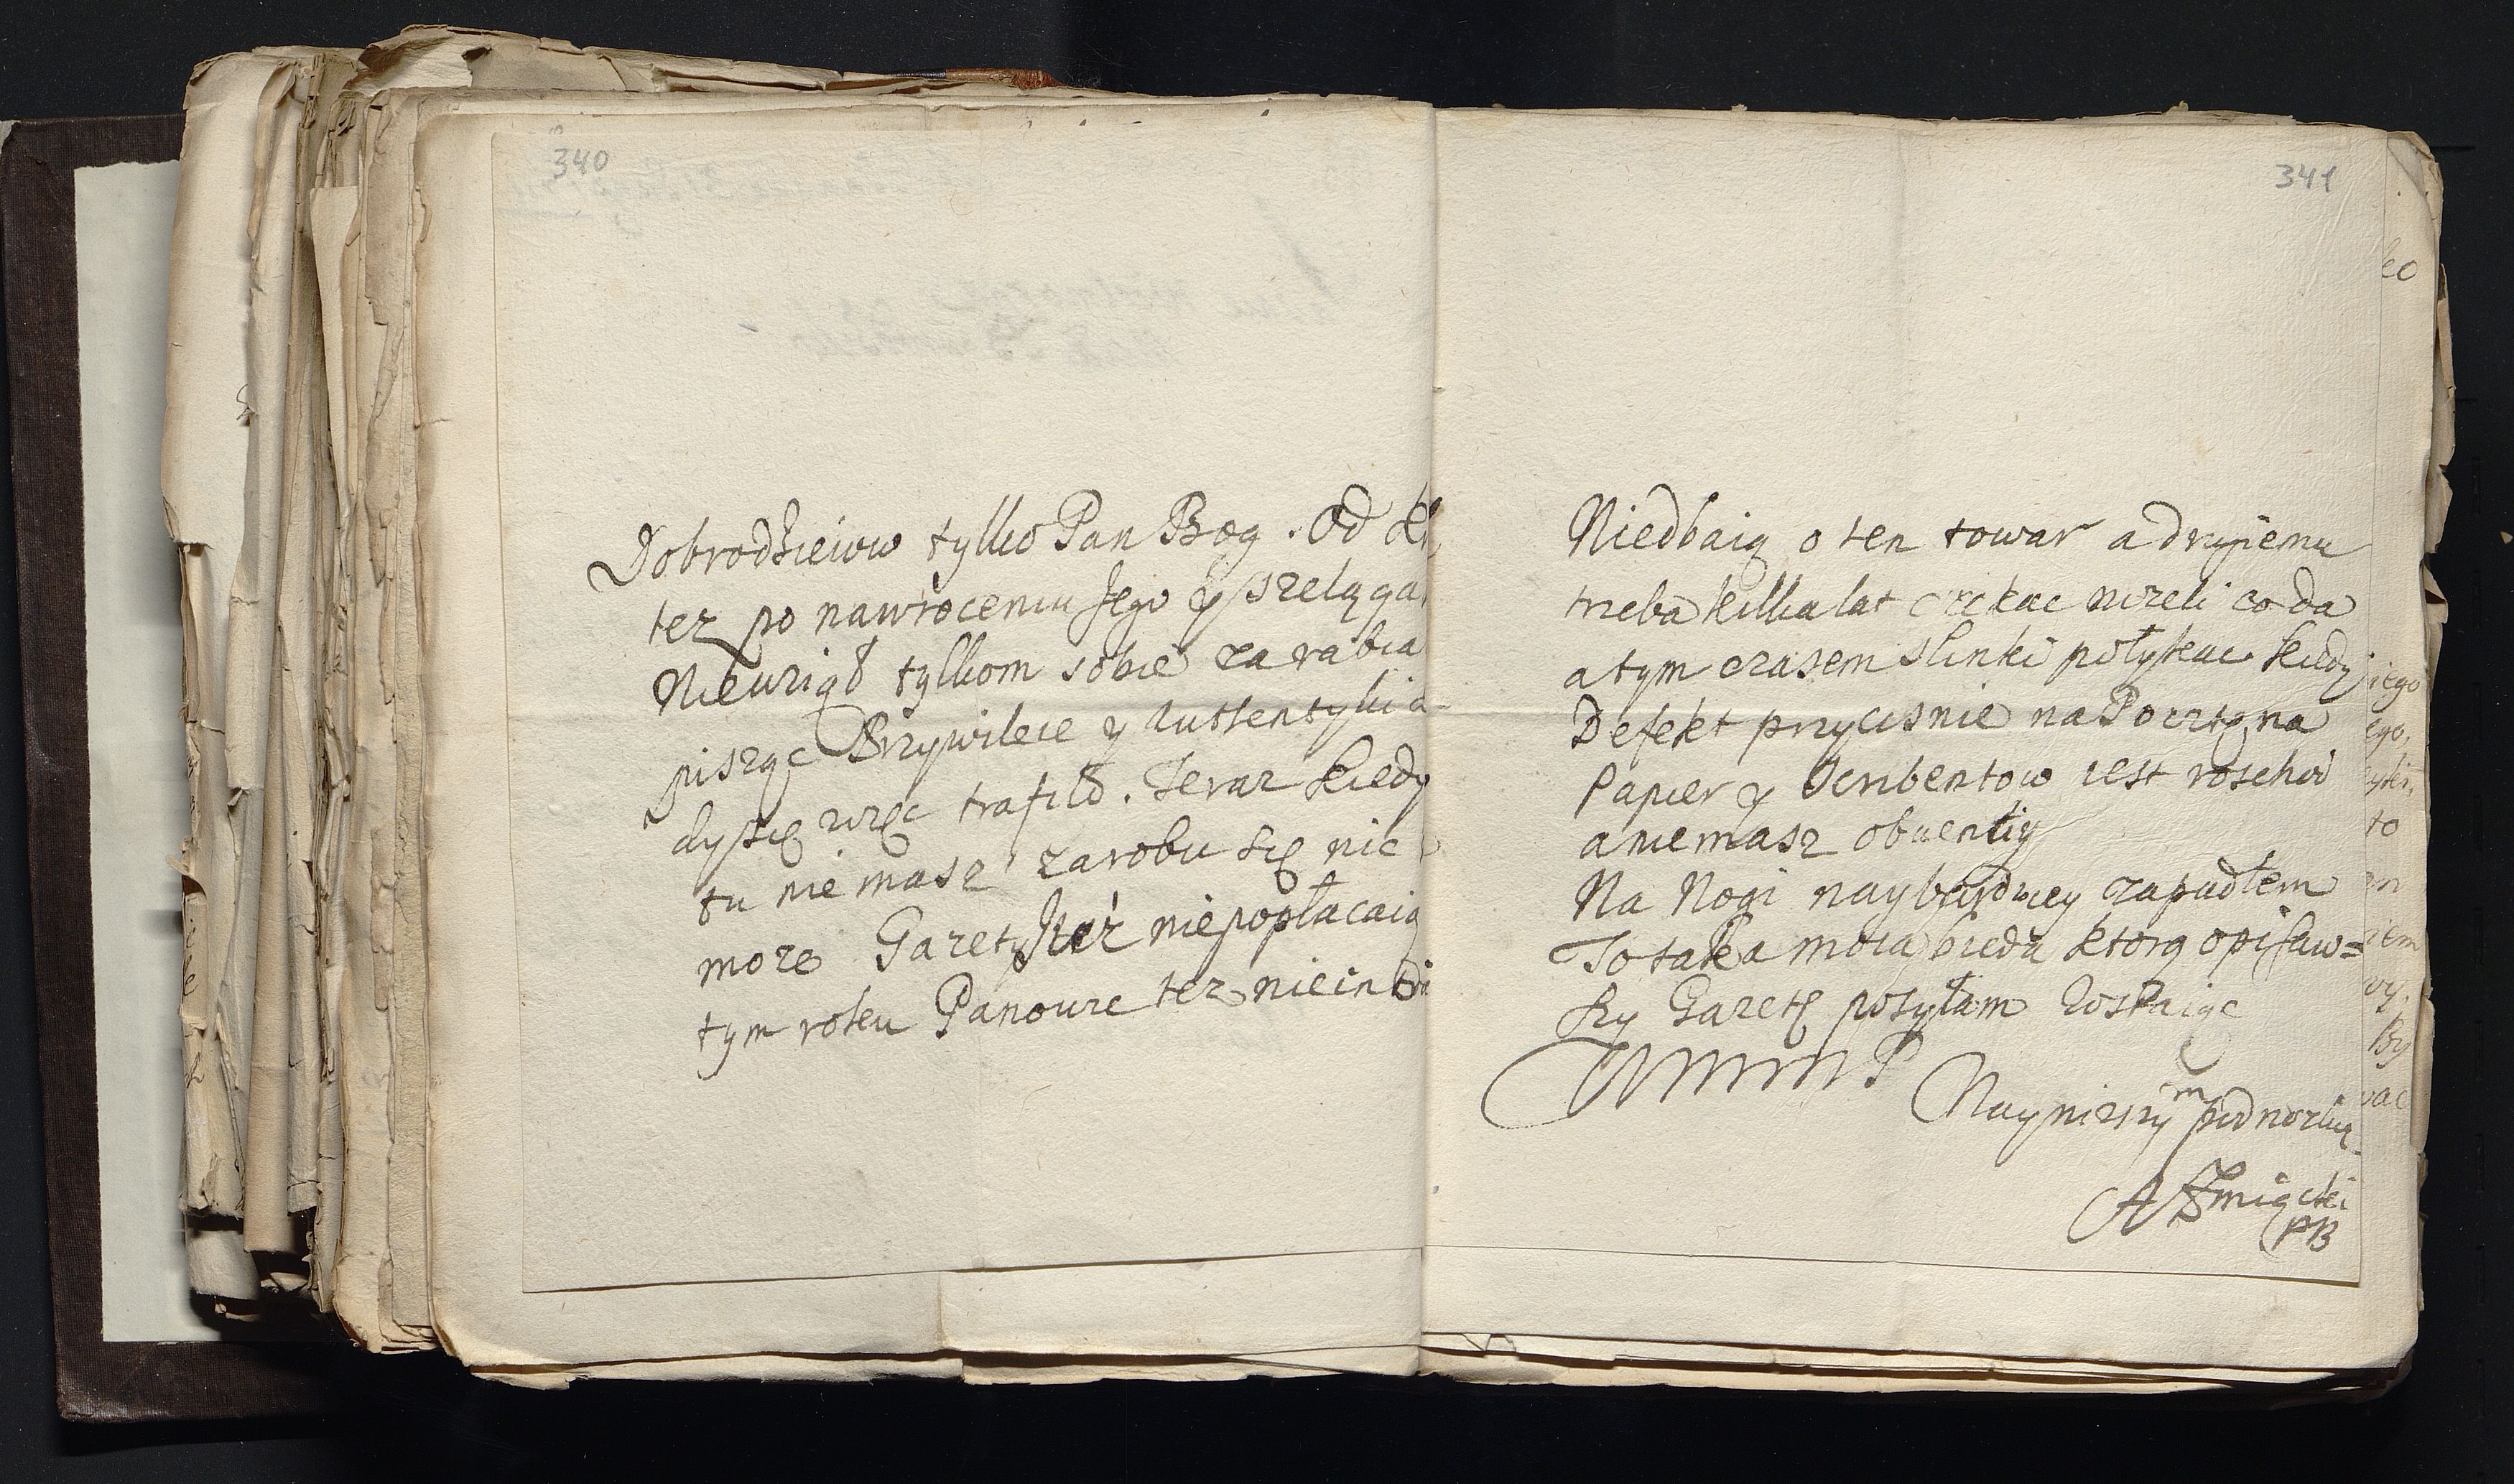 340
Dobrodzieiow tylko Pan Bog. Od
tez po nawroceniu Jego y szeląga
Niewziął tylkom sobie zarabia
pisząc Przywileie y Authentyki a
dy się więc trafiło. Teraz kiedy
tu nie masz zarobu się nic
moze Gazety tez niepopłacaią
tym roku Panowie tez nie
341
Niedbaią o ten towar a drugiemu
trzeba kilka lat czekac nizeli co da
a tym czasem slinki połykac kiedy
Defekt przycisnie na Pocztę na
Papier y Scribentow iest roschod
a niemasz obwentiy
Na Nogi naybardziey zapadłem
To taka moia bieda ktorą opisaw=
szy Gazetę posyłam Zostaiąc
WMMMP
Nayniszym podnozkiem
A Zmiącki
PB
ko
iego
ego.
to
em
By
wac